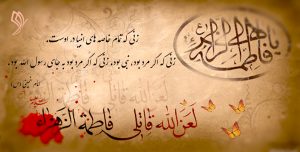 یا فاطمة الزهراء
زنی که تمام خاصه های انبیا در اوست.
زنی که اگر مرد بود، نبی بود، زنی که اگر مرد بود به جای رسول الله بود.
امام خمینی (س)
لعن الله قاتلی فاطمة الزهراء